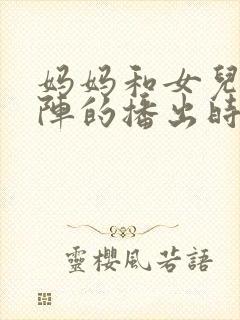 妈妈和女兒
陣的播出時
靈櫻風若語